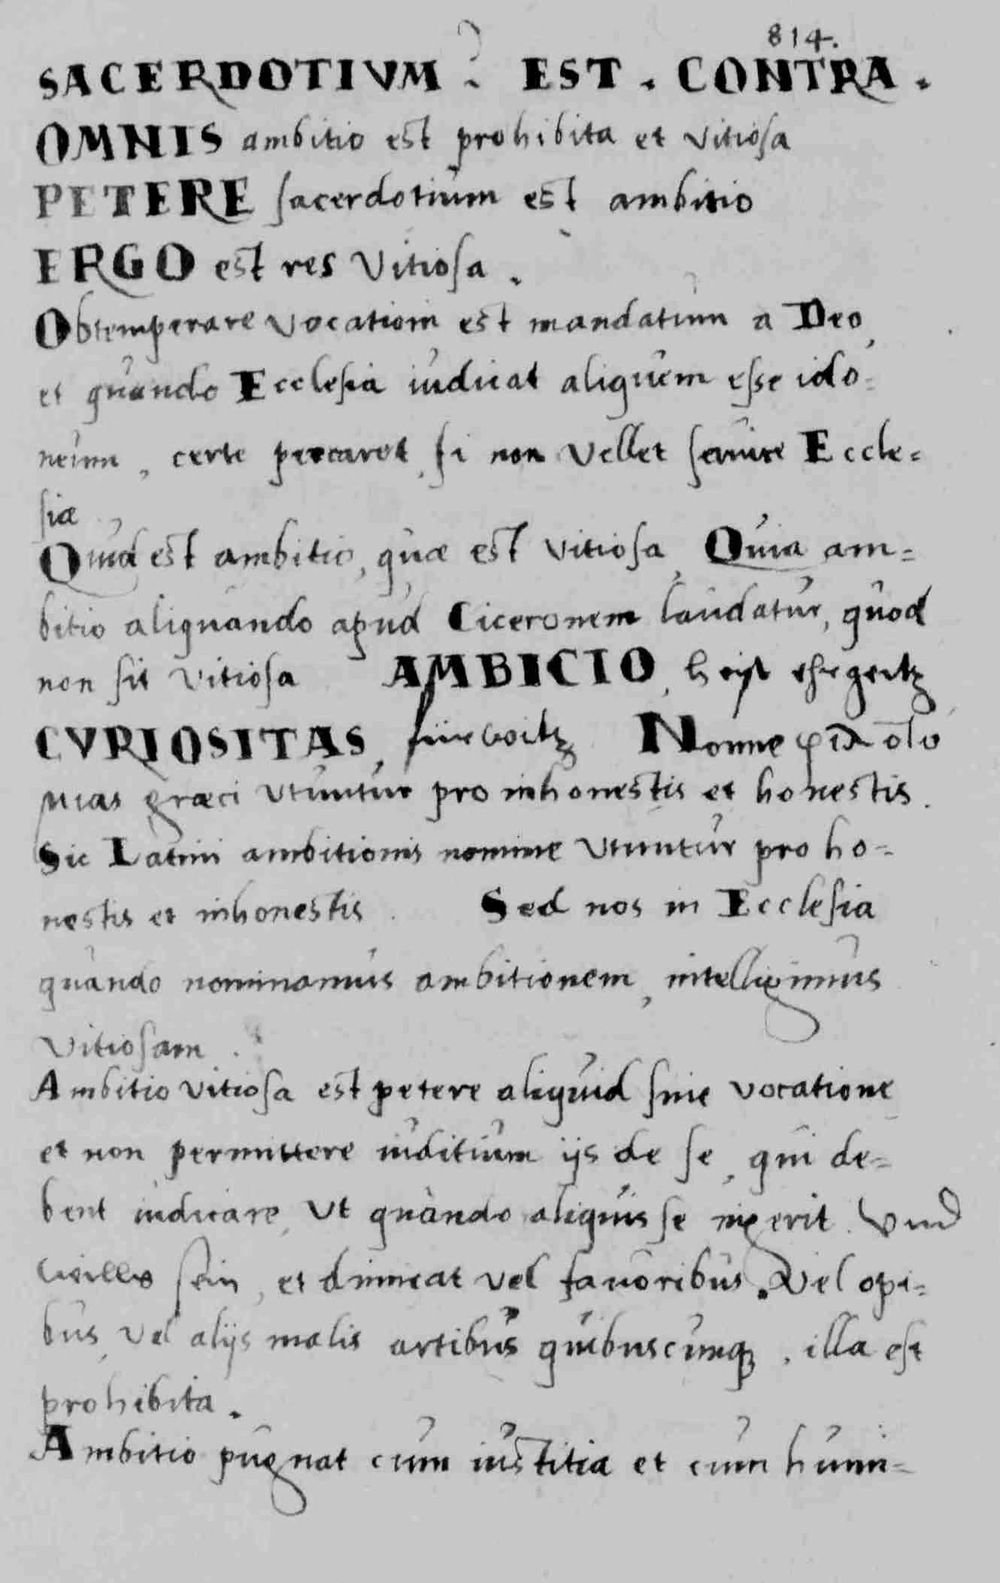 814.
SACERDOTIVM ? EST . CONTRA .
OMNIS ambitio est prohibita et vitiosa
PETERE sacerdotium est ambitio
ERGO est res vitiosa .
Obtemperare vocationi est mandatum a Deo,
et quando Ecclesia iudicat aliquem esse ido=
neum, certe peccaret, si non vellet seruire Eccle=
siæ
Quid est ambitio, quæ est vitiosa, Quia am=
bitio aliquando apud Ciceronem laudatur, quod
non sit vitiosa AMBICIO, heist ehrgeitz
CVRIOSITAS, furwitz Nonne φιλοτι
μιας græci vtuntur pro inhonestis et honestis.
Sic Latini ambitionis nomine vtuntur pro ho=
nestis et inhonestis. Sed nos in Ecclesia
quando nominamus ambitionem, intelligimus
vitiosam.
Ambitio vitiosa est petere aliquid sine vocatione
et non permittere iuditium iis de se, qui de=
bent iudicare, Vt quando aliquis se ingerit. Vnd
will es sein, et dimicat vel fauoribus, Vel opi=
bus, vel alijs malis artibus quibuscunque, illa est
prohibita.
Ambitio pugnat cum iustitia et cum humi=